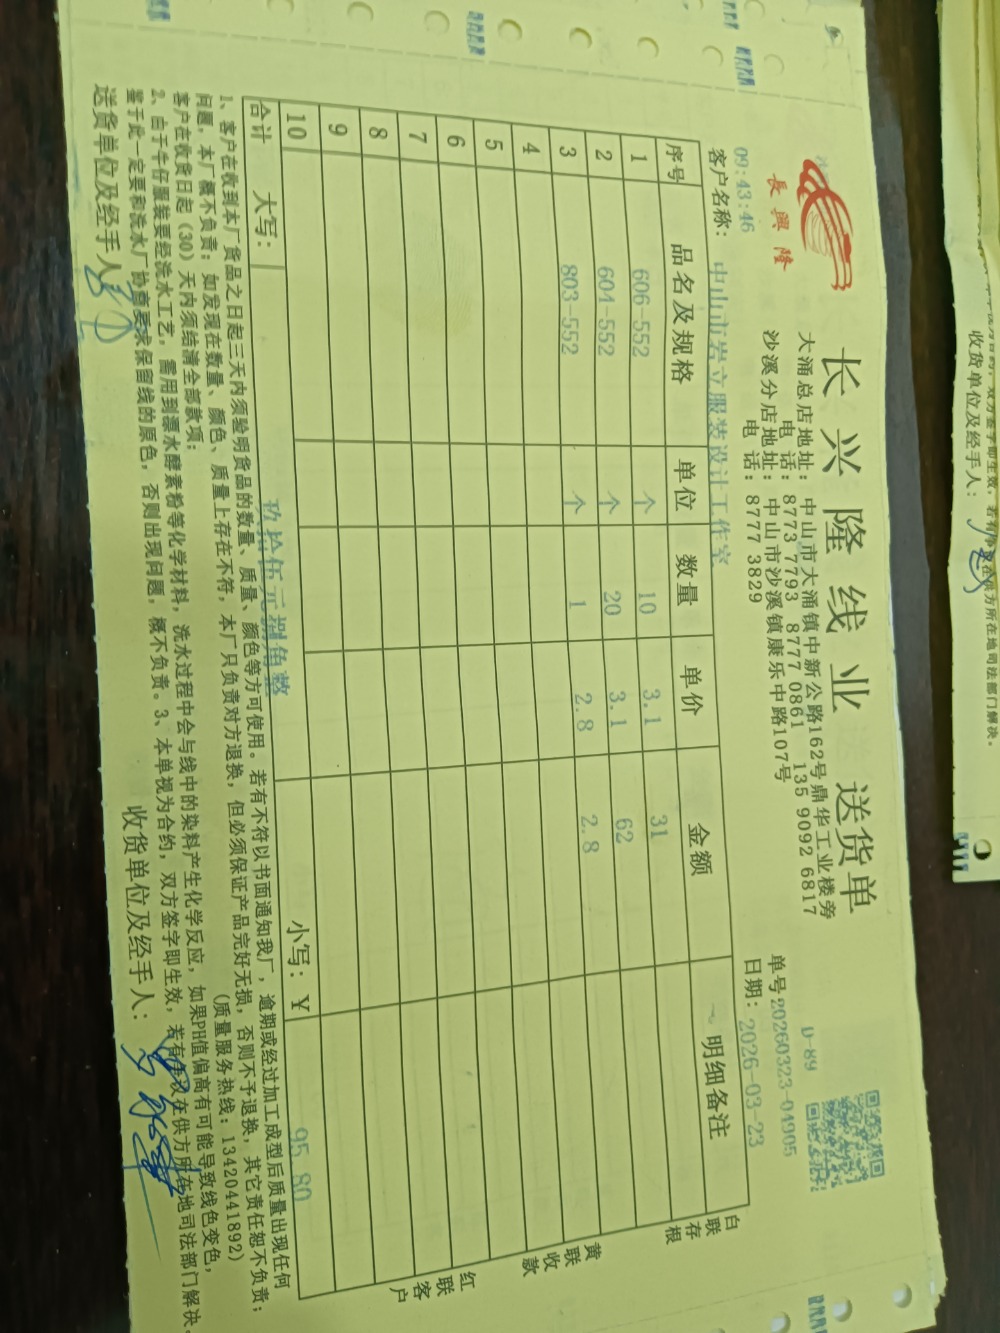 长兴隆线业 送货单
長興隆
大涌总店地址：中山市大涌镇中新公路162号鼎华工业楼旁
电 话：8773 7793 8777 0861 135 9092 6817
沙溪分店地址：中山市沙溪镇康乐中路107号
电 话：8777 3829
D-89
单号20260323-04905
日期：2026-03-23
09:43:46
客户名称：中山市岩立服装设计工作室
序号 品名及规格 单位 数量 单价 金额 明细备注
1 606-552 个 10 3.1 31
2 604-552 个 20 3.1 62
3 803-552 个 1 2.8 2.8
4
5
6
7
8
9
10
合计 大写：玖拾伍元捌角整 小写：￥ 95.80
白联存根
黄联收款
红联客户
1、客户在收到本厂货品之日起三天内须验明货品的数量、质量、颜色等方可使用。若有不符以书面通知我厂，逾期或经过加工成型后质量出现任何
问题，本厂概不负责；如发现在数量、颜色、质量上存在不符，本厂只负责对方退换，但必须保证产品完好无损，否则不予退换，其它责任恕不负责；
客户在收货日起（30）天内须结清全部款项； （质量服务热线：13420441892）
2、由于牛仔服装要经洗水工艺，需用到漂水酵素粉等化学材料，洗水过程中会与线中的染料产生化学反应，如果PH值偏高有可能导致线色变色，
鉴于此一定要和洗水厂协查要求保留线的原色，否则出现问题，概不负责。3、本单视为合约，双方签字即生效，若有争议在供方所在地司法部门解决。
送货单位及经手人： 收货单位及经手人：
双方签字即生效，若有争议在供方所在地司法部门解决。
收货单位及经手人：